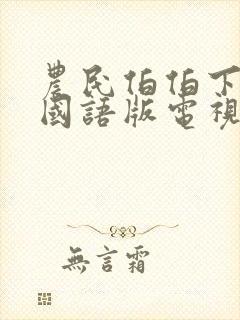 農民伯伯下
國語版電視
無言霜